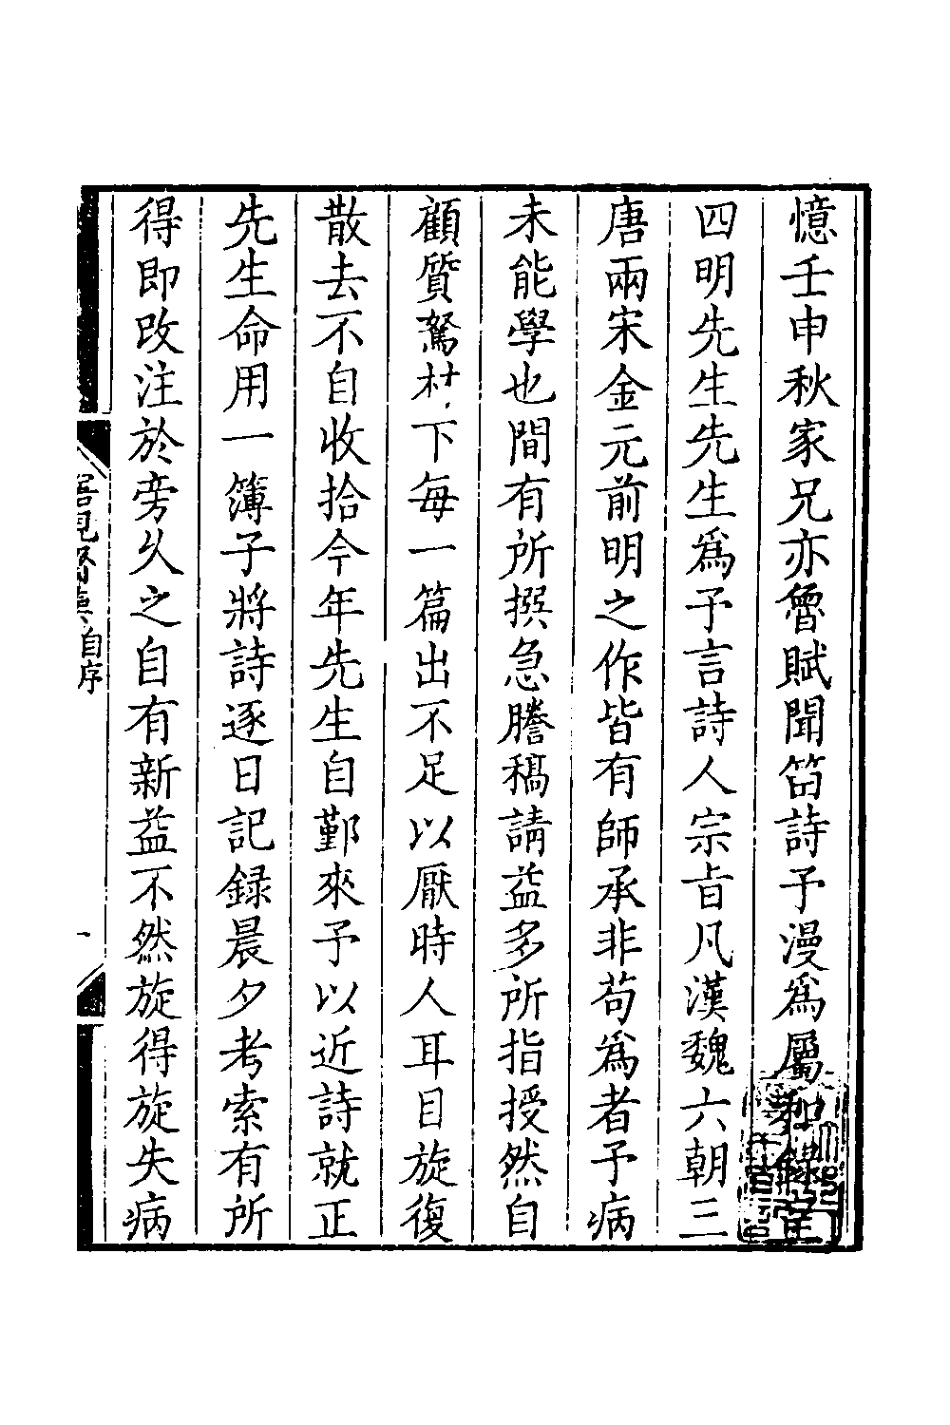 憶壬申秋家兄亦魯賦聞笛詩予漫爲屬和録呈
四明先生先生爲予言詩人宗旨凡漢魏六朝三
唐兩宋金元前明之作皆有師承非苟爲者予病
未能學也間有所撰急謄稿請益多所指授然自
顧質駑材下每一篇出不足以厭時人耳目旋復
散去不自收拾今年先生自鄞來予以近詩就正
先生命用一簿子將詩逐日記録晨夕考索有所
得即改注於旁久之自有新益不然旋得旋失病
自序
一